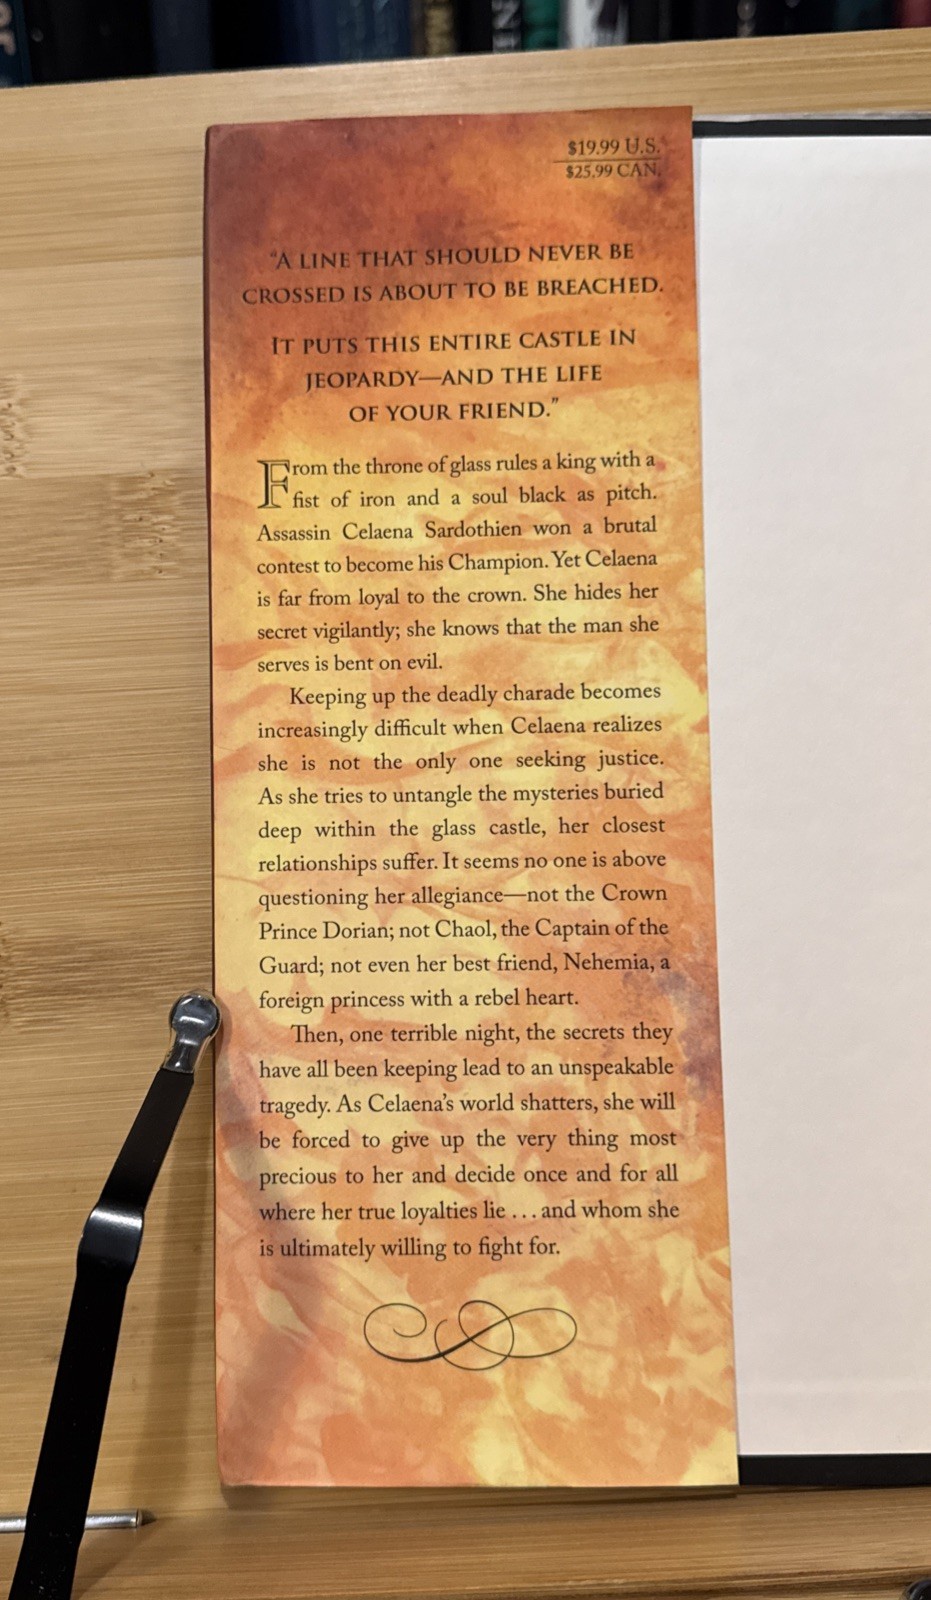 $19.99 U.S.
$25.99 CAN.
“A LINE THAT SHOULD NEVER BE
CROSSED IS ABOUT TO BE BREACHED.
IT PUTS THIS ENTIRE CASTLE IN
JEOPARDY—AND THE LIFE
OF YOUR FRIEND.”
From the throne of glass rules a king with a
fist of iron and a soul black as pitch.
Assassin Celaena Sardothien won a brutal
contest to become his Champion. Yet Celaena
is far from loyal to the crown. She hides her
secret vigilantly; she knows that the man she
serves is bent on evil.
Keeping up the deadly charade becomes
increasingly difficult when Celaena realizes
she is not the only one seeking justice.
As she tries to untangle the mysteries buried
deep within the glass castle, her closest
relationships suffer. It seems no one is above
questioning her allegiance—not the Crown
Prince Dorian; not Chaol, the Captain of the
Guard; not even her best friend, Nehemia, a
foreign princess with a rebel heart.
Then, one terrible night, the secrets they
have all been keeping lead to an unspeakable
tragedy. As Celaena’s world shatters, she will
be forced to give up the very thing most
precious to her and decide once and for all
where her true loyalties lie . . . and whom she
is ultimately willing to fight for.